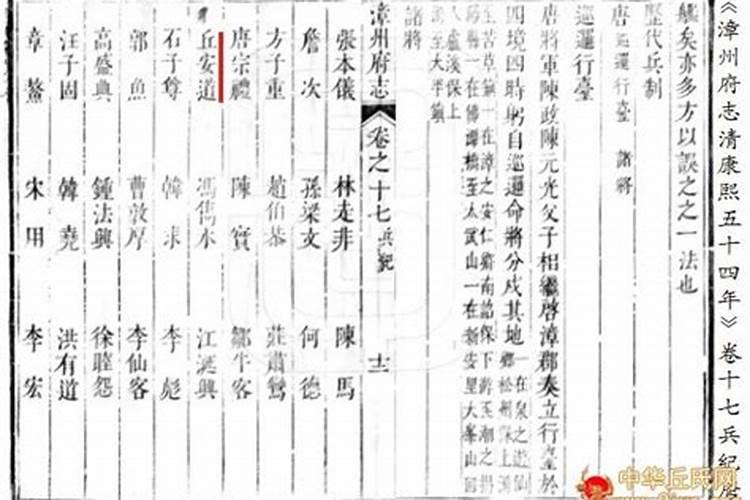 《漳州府志清康熙五十四年》卷十七兵紀
艦矣亦多方以誤之之一法也
歷代兵制
唐 巡邏行臺 諸將
巡邏行臺
唐將軍陳政陳元光父子相繼啓漳郡奏立行臺於
四境四時躬自巡邏命將分戍其地
一在泉之遊仙
鄉松州保上游
至苦草鎮一在漳之安仁鄉南詔保下游至潮之揭
陽縣一在佛潭橋至太武山一在新安里大峯山回
入盧溪保上
游至大平鎮
諸將
漳州府志 卷之十七 兵紀 十二
張本儀 林走非 陳馬
詹次 孫梁文 何德
方子重 趙伯恭 莊肅鸞
唐宗禮 陳實 鄒牛客
丘安道 馮雋永 江延興
石子尊 韓求 李彪
郭魚 曹敦厚 李仙客
高盛典 鍾法興 徐睦怨
汪子固 韓堯 洪有道
章鰲 宋用 李宏
中华丘氏网